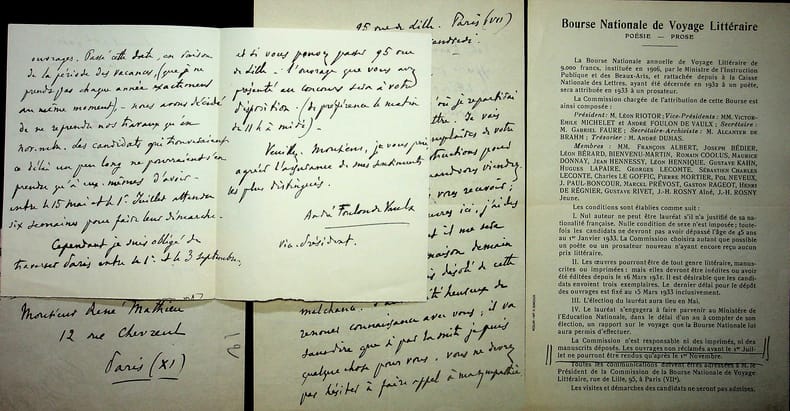 ouvrages. Passé cette date, en raison
de la période des vacances, (que je ne
prends pas chaque année exactement
au même moment) - nous avons décidé
de ne reprendre nos travaux qu'en
novembre. Les candidats qui trouveraient
ce délai un peu long ne pourraient s'en
prendre qu'à eux-mêmes d'avoir -
entre le 15 mai et le 1er Juillet attendu
six semaines pour faire leur démarche.
Cependant je suis obligé de
traverser Paris entre le 1er et le 3 septembre,
et si vous pouvez passer 95 rue
de Lille - l'ouvrage que vous avez
présenté au concours sera à votre
disposition - (de préférence le matin
de 11 h à midi) -
Veuillez, Monsieur, je vous prie
agréer l'assurance de mes sentiments
les plus distingués.
André Foulon de Vaulx
Vice-Président.
Monsieur René Mathieu
12 rue Chevreul
Paris (XI)
95 rue de Lille. Paris (VII)
vendredi.
je repartirai
Je vais
de votre
pour
viendrez
vous recevoir ;
ici, j'ai des
il me sera
maison demain
dépôt de cette
heureux de
renouer connaissance avec vous ; il va
sans dire que si par la suite je puis
quelque chose pour vous, vous ne devrez
pas hésiter à faire appel à ma sympathie
Bourse Nationale de Voyage Littéraire
POÉSIE — PROSE
La Bourse Nationale annuelle de Voyage Littéraire de
9.000 francs, instituée en 1906, par le Ministère de l'Instruction
Publique et des Beaux-Arts, et rattachée depuis à la Caisse
Nationale des Lettres, ayant été décernée en 1932 à un poète,
sera attribuée en 1933 à un prosateur.
La Commission chargée de l'attribution de cette Bourse est
ainsi composée :
Président : M. LÉON RIOTOR; Vice-Présidents : MM. VICTOR-
ÉMILE MICHELET et ANDRÉ FOULON DE VAULX ; Secrétaire :
M. GABRIEL FAURE ; Secrétaire-Archiviste : M. ALCANTER DE
BRAHM ; Trésorier : M. ANDRÉ DUMAS.
Membres : MM. FRANÇOIS ALBERT, JOSEPH BÉDIER,
LÉON BÉRARD, BIENVENU-MARTIN, ROMAIN COOLUS, MAURICE
DONNAY, JEAN HENNESSY, LÉON HENNIQUE, GUSTAVE KAHN,
HUGUES LAPAIRE, GEORGES LECOMTE, SÉBASTIEN CHARLES
LECONTE, CHARLES LE GOFFIC, PIERRE MORTIER, POL NEVEUX,
J. PAUL-BONCOUR, MARCEL PRÉVOST, GASTON RAGEOT, HENRI
DE RÉGNIER, GUSTAVE RIVET, J.-H. ROSNY Aîné, J.-H. ROSNY
Jeune.
Les conditions sont établies comme suit :
I. Nul auteur ne peut être lauréat s'il n'a justifié de sa na-
tionalité française. Nulle condition de sexe n'est imposée ; toute-
fois les candidats ne devront pas avoir dépassé l'âge de 45 ans
au 1er Janvier 1933. La Commission choisira autant que possible
un poète ou un prosateur nouveau n'ayant encore reçu aucun
prix littéraire.
II. Les œuvres pourront être de tout genre littéraire, manus-
crites ou imprimées : mais elles devront être inédites ou avoir
été éditées depuis le 16 Mars 1931. Il est désirable que les candidats
envoient trois exemplaires. Le dernier délai pour le dépôt
des ouvrages est fixé au 15 Mars 1933 inclusivement.
III. L'élection du lauréat aura lieu en Mai.
IV. Le lauréat s'engagera à faire parvenir au Ministère de
l'Éducation Nationale, dans le délai d'un an à compter de son
élection, un rapport sur le voyage que la Bourse Nationale lui
aura permis d'effectuer.
La Commission n'est responsable ni des imprimés, ni des
manuscrits déposés. Les ouvrages non réclamés avant le 1er Juil-
let ne pourront être rendus qu'après le 1er Novembre.
Toutes les communications doivent être adressées à M. le
Président de la Commission de la Bourse Nationale de Voyage
Littéraire, rue de Lille, 95, à Paris (VIIe).
Les visites et démarches des candidats ne seront pas admises.